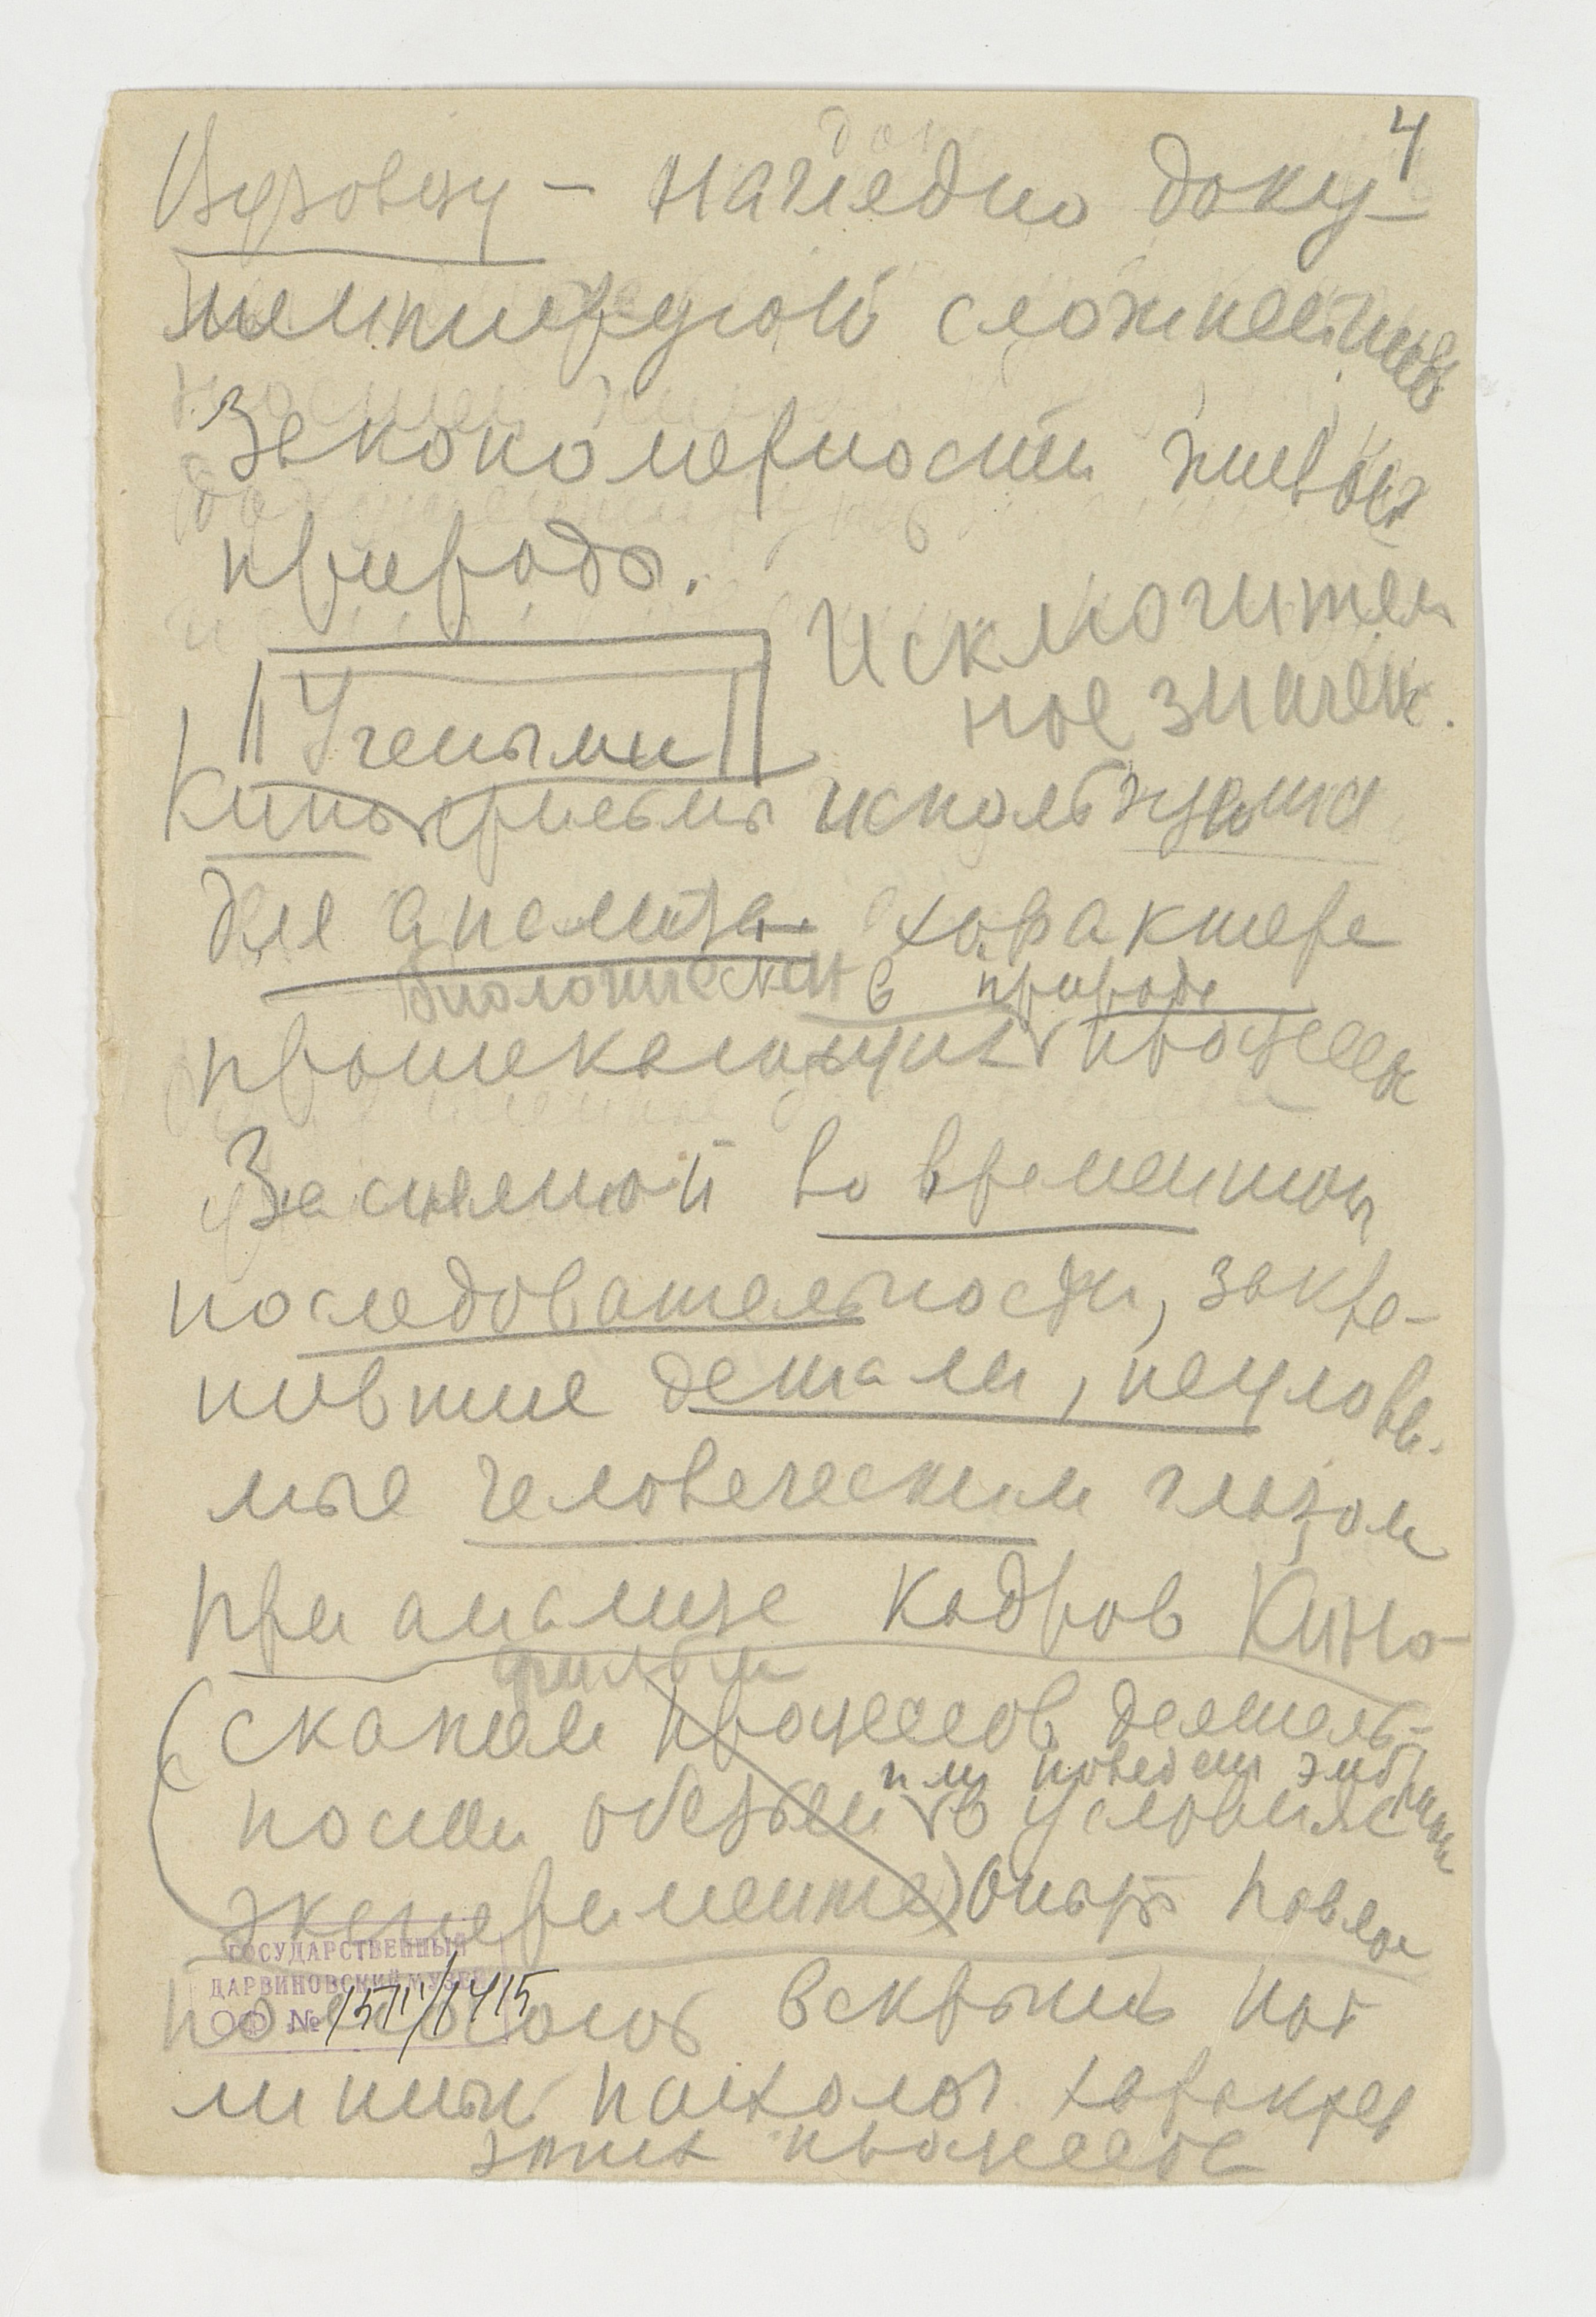 4
Вузовцу – наглядно доку-
ментирующий сложнейшие
закономерности живой
природы.
Исключитель
ное значен.
Учеными
Кино фильмы используются
для анализа характера
биологически в природе
протекающих процессов
Заснятой во временной
последовательности, закре-
пившие детали, неулови-
мые человеческим глазом
при анализе кадров Кино-
фильм
скапии процессов деятель-
или поведен
ности обезьян в условиях
эксперимента) Опыт
вскрыть
психолог характер
этих процессов
ГОСУДАРСТВЕННЫЙ
ДАРВИНОВСКИЙ МУЗЕЙ
ОФ № 15111/1415